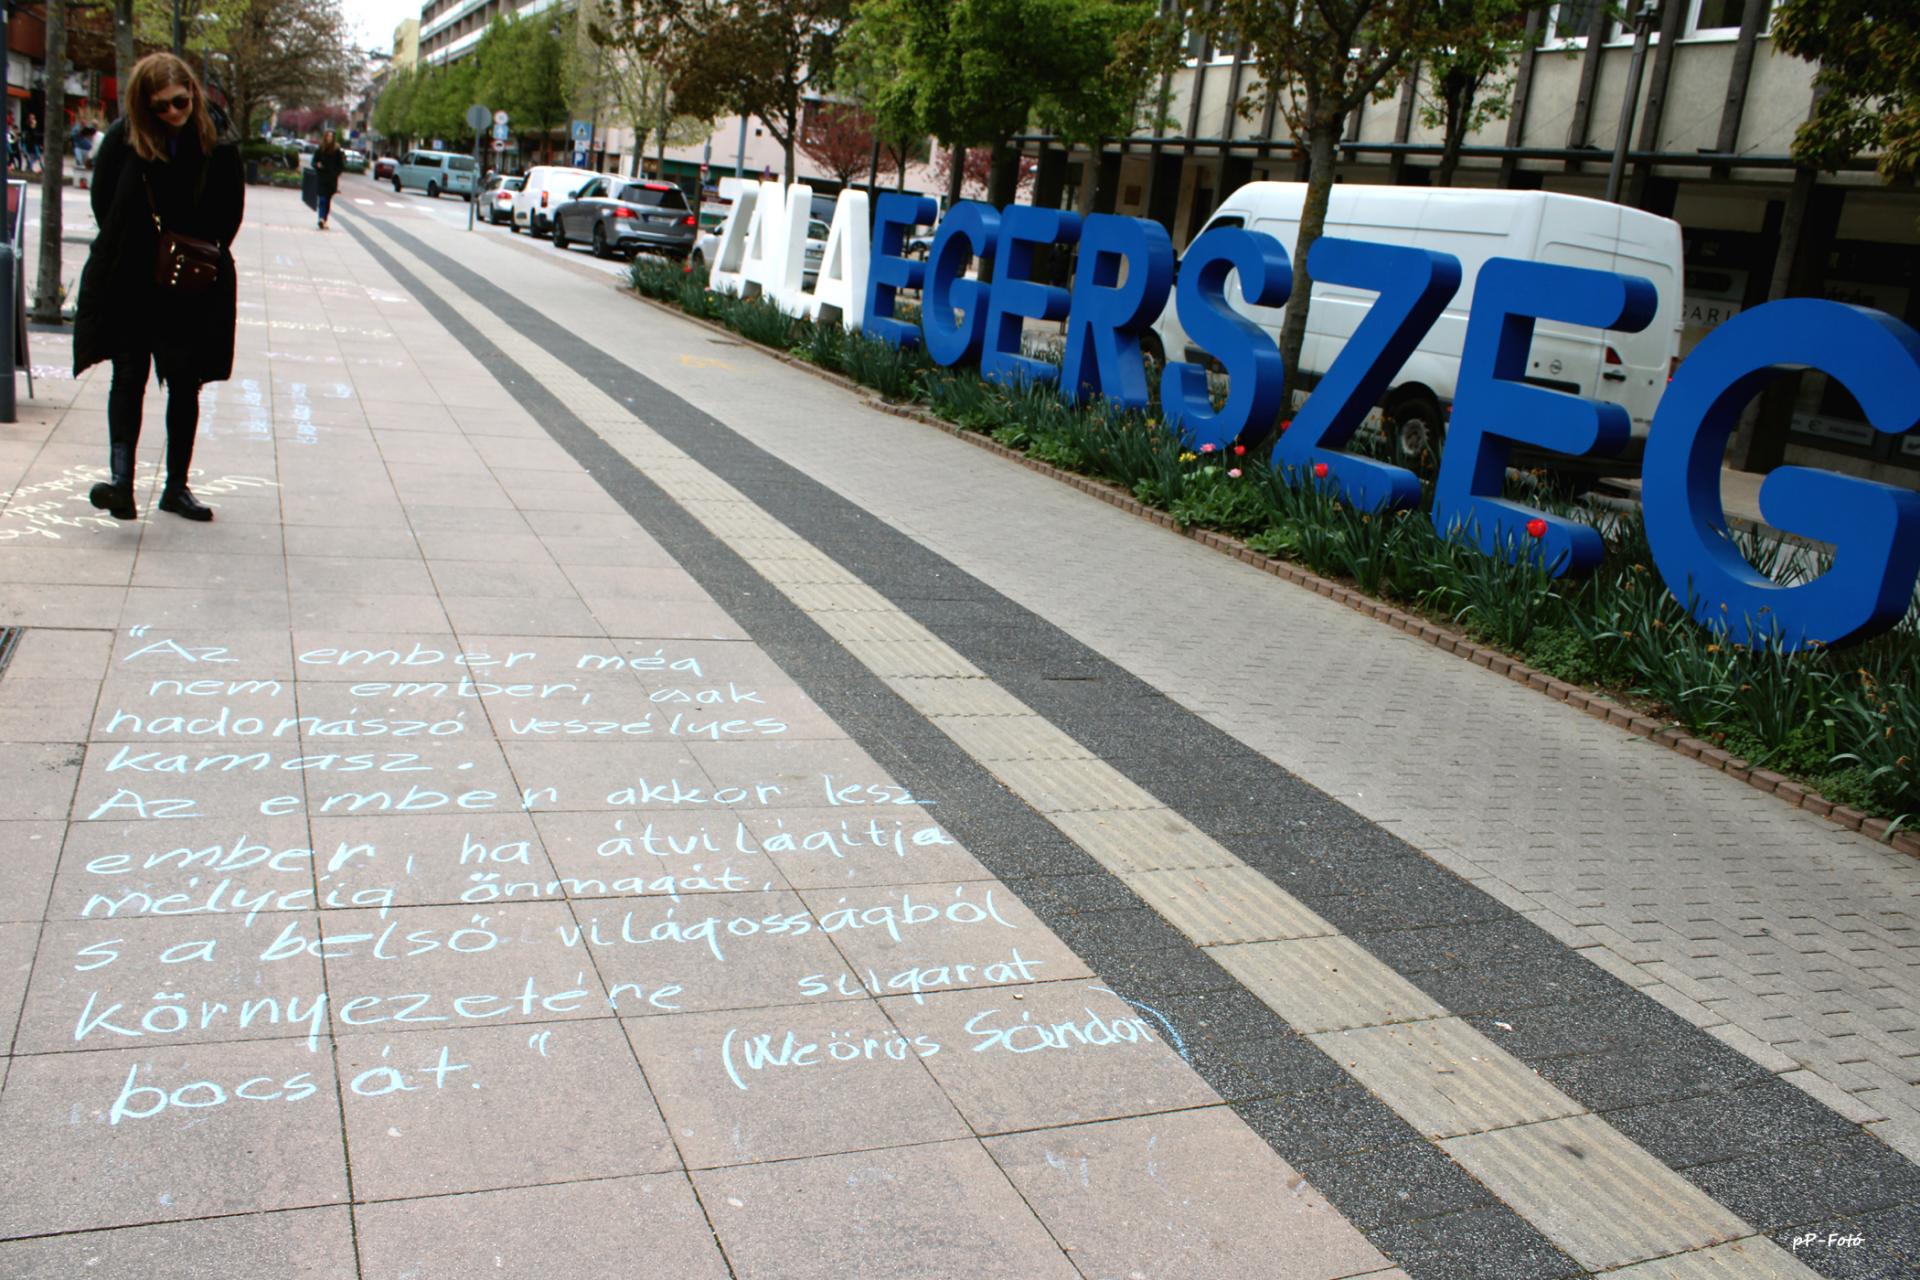 ZALAEGERSZEG
"Az ember még
nem ember, csak
hadonászó veszélyes
kamasz.
Az ember akkor lesz
ember, ha átvilágítja
mélyéig önmagát,
s a belső világosságból
környezetére sugarat
bocsát."
(Weörös Sándor)
pP-Fotó